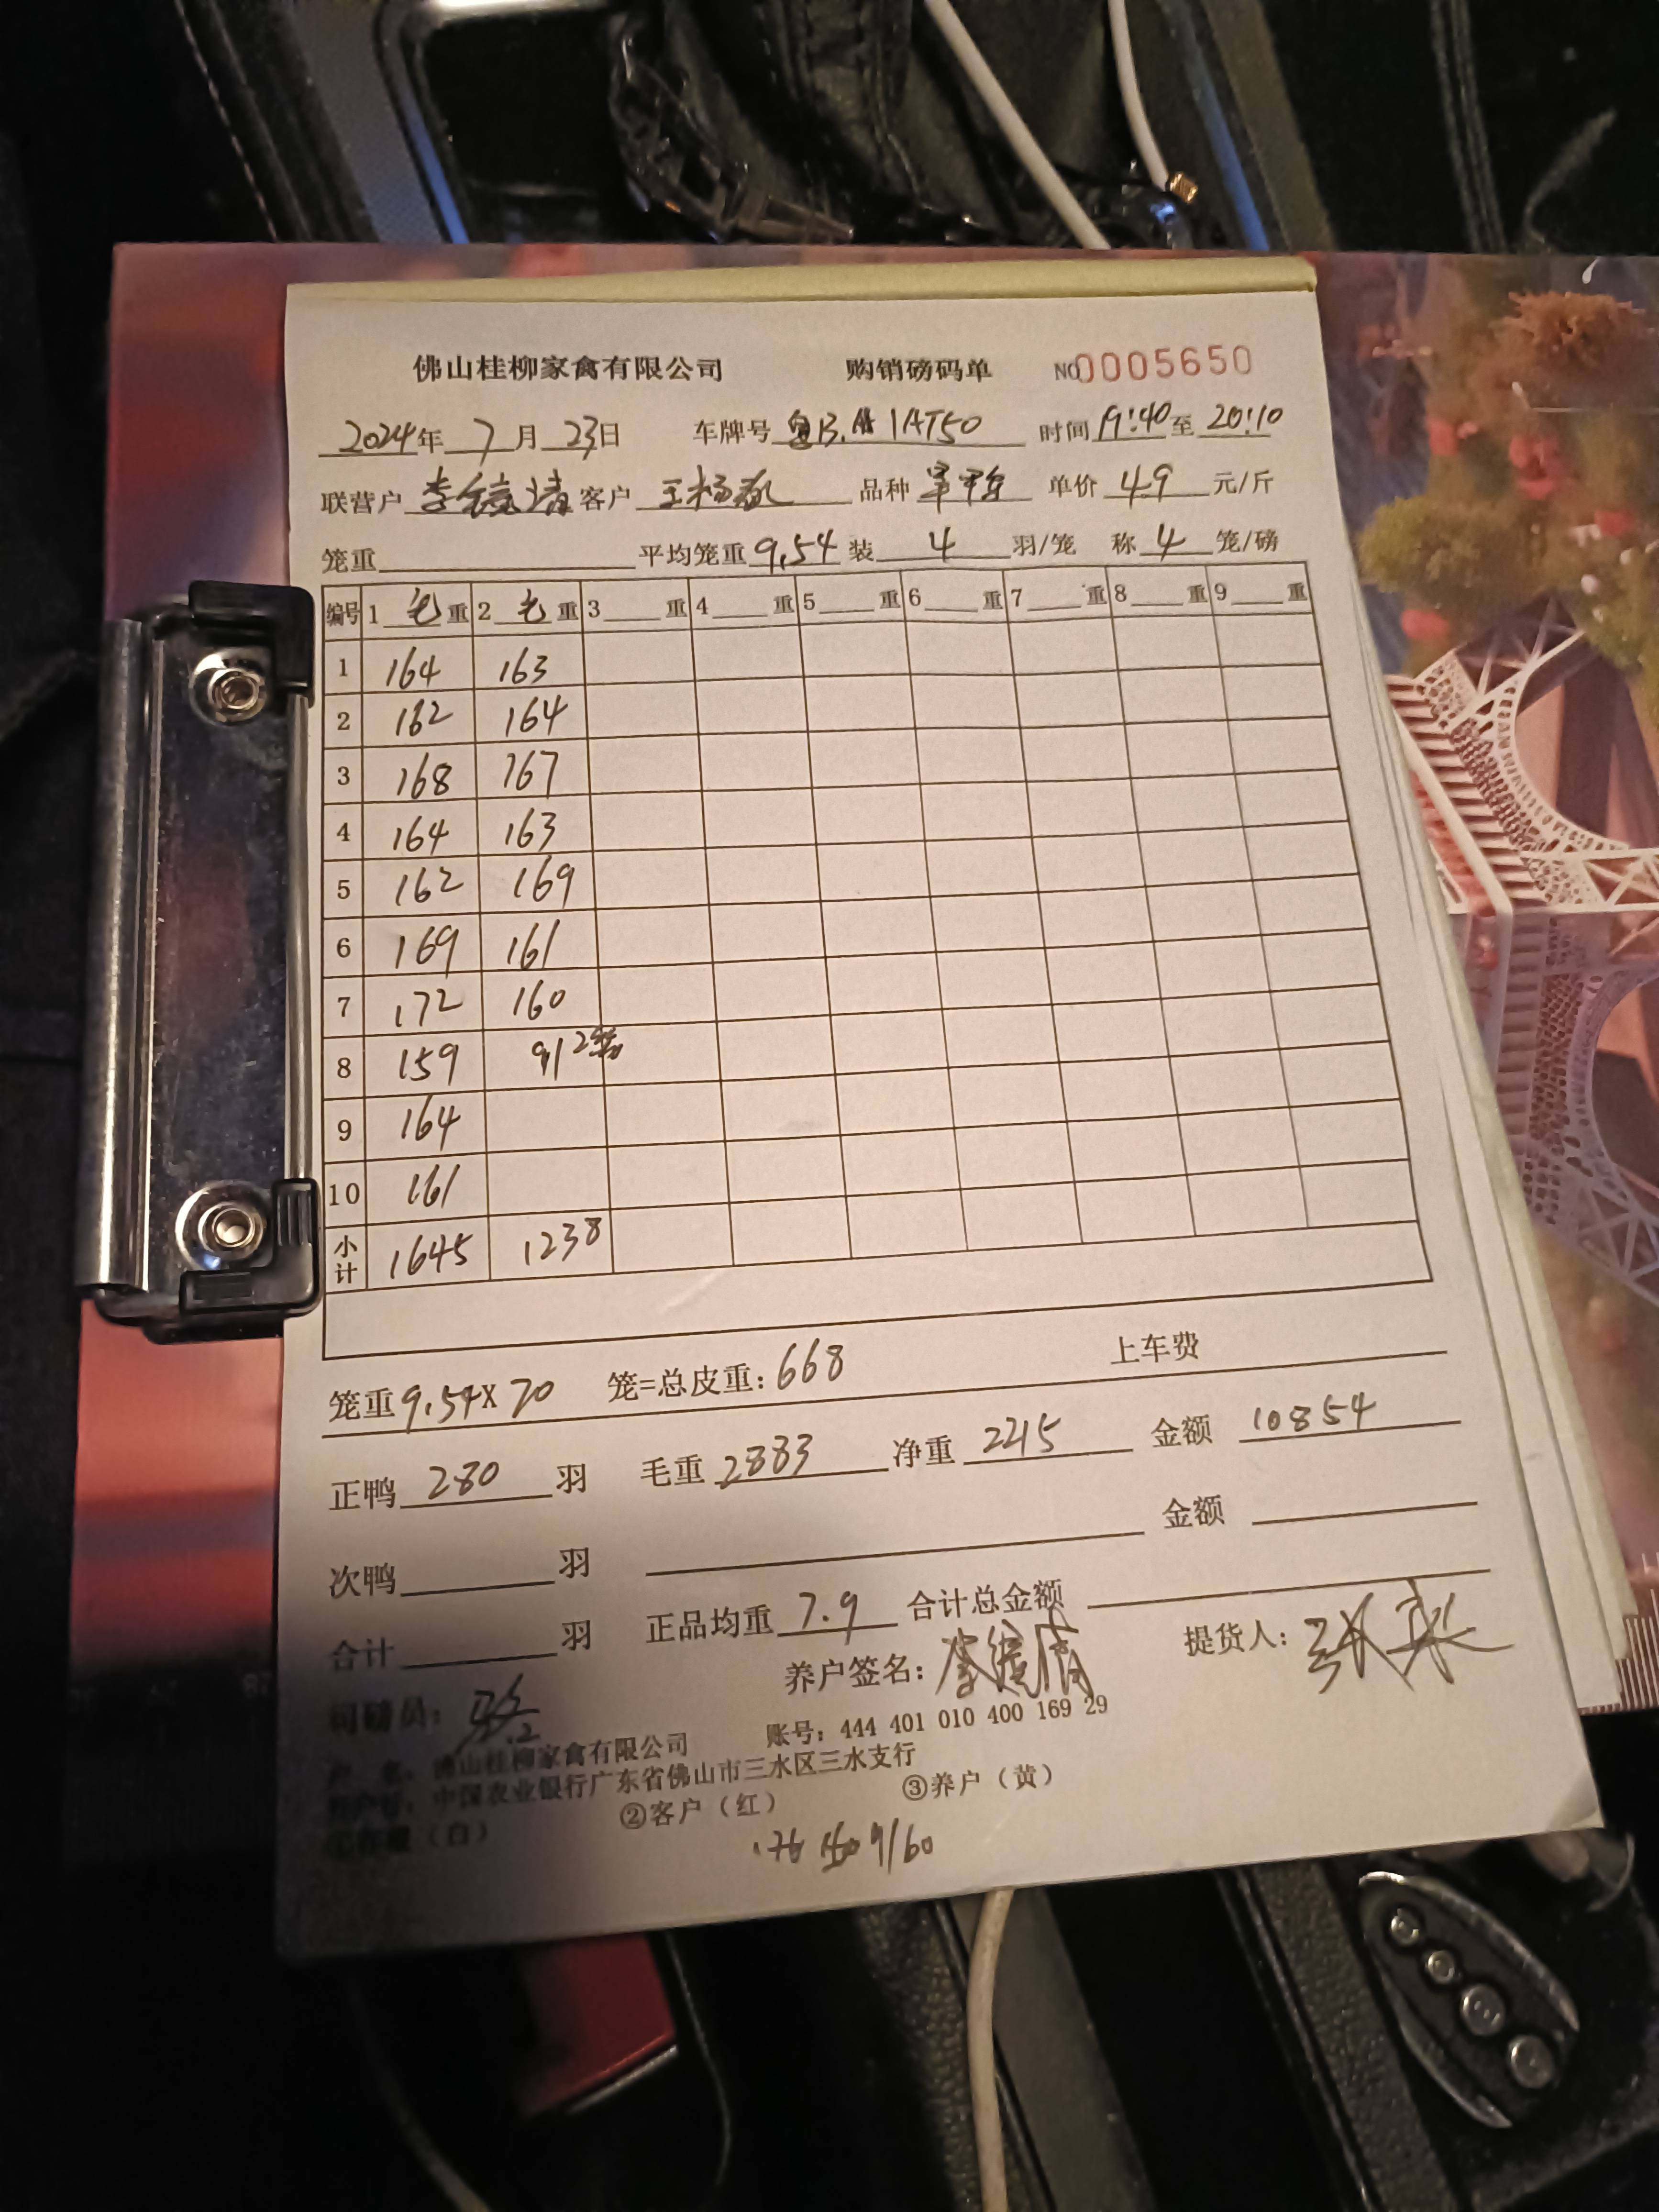 佛山桂柳家禽有限公司 购销磅码单 NO0005650
2024年 7月 23日 车牌号 粤B.A1AT50 时间 19:40 至 20:10
联营户 李 清 客户 王杨 品种 单价 4.9 元/斤
笼重 平均笼重 9.54 装 4 羽/笼 称 4 笼/磅
编号 1 毛 重 2 毛 重 3 重 4 重 5 重 6 重 7 重 8 重 9 重
1 164 163
2 162 164
3 168 167
4 164 163
5 162 169
6 169 161
7 172 160
8 159 91 2笼
9 164
10 161
小计 1645 1238
笼重 9.54X70 笼=总皮重: 668 上车费
正鸭 280 羽 毛重 2883 净重 2215 金额 10854
次鸭 羽 金额
合计 羽 正品均重 7.9 合计总金额
司磅员: 养户签名: 提货人:
户 名: 佛山桂柳家禽有限公司 账号: 444 401 010 400 169 29
开户行: 中国农业银行广东省佛山市三水区三水支行
(白) ②客户（红） ③养户（黄）
9160